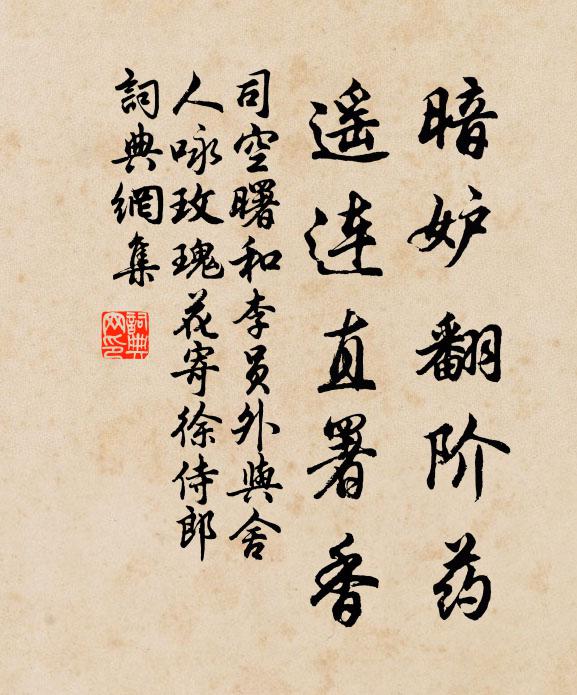 暗妒翻阶药
遥连直署香
司空曙和李员外與舍
人咏玫瑰花寄徐侍郎
詞典網集
詞典网印